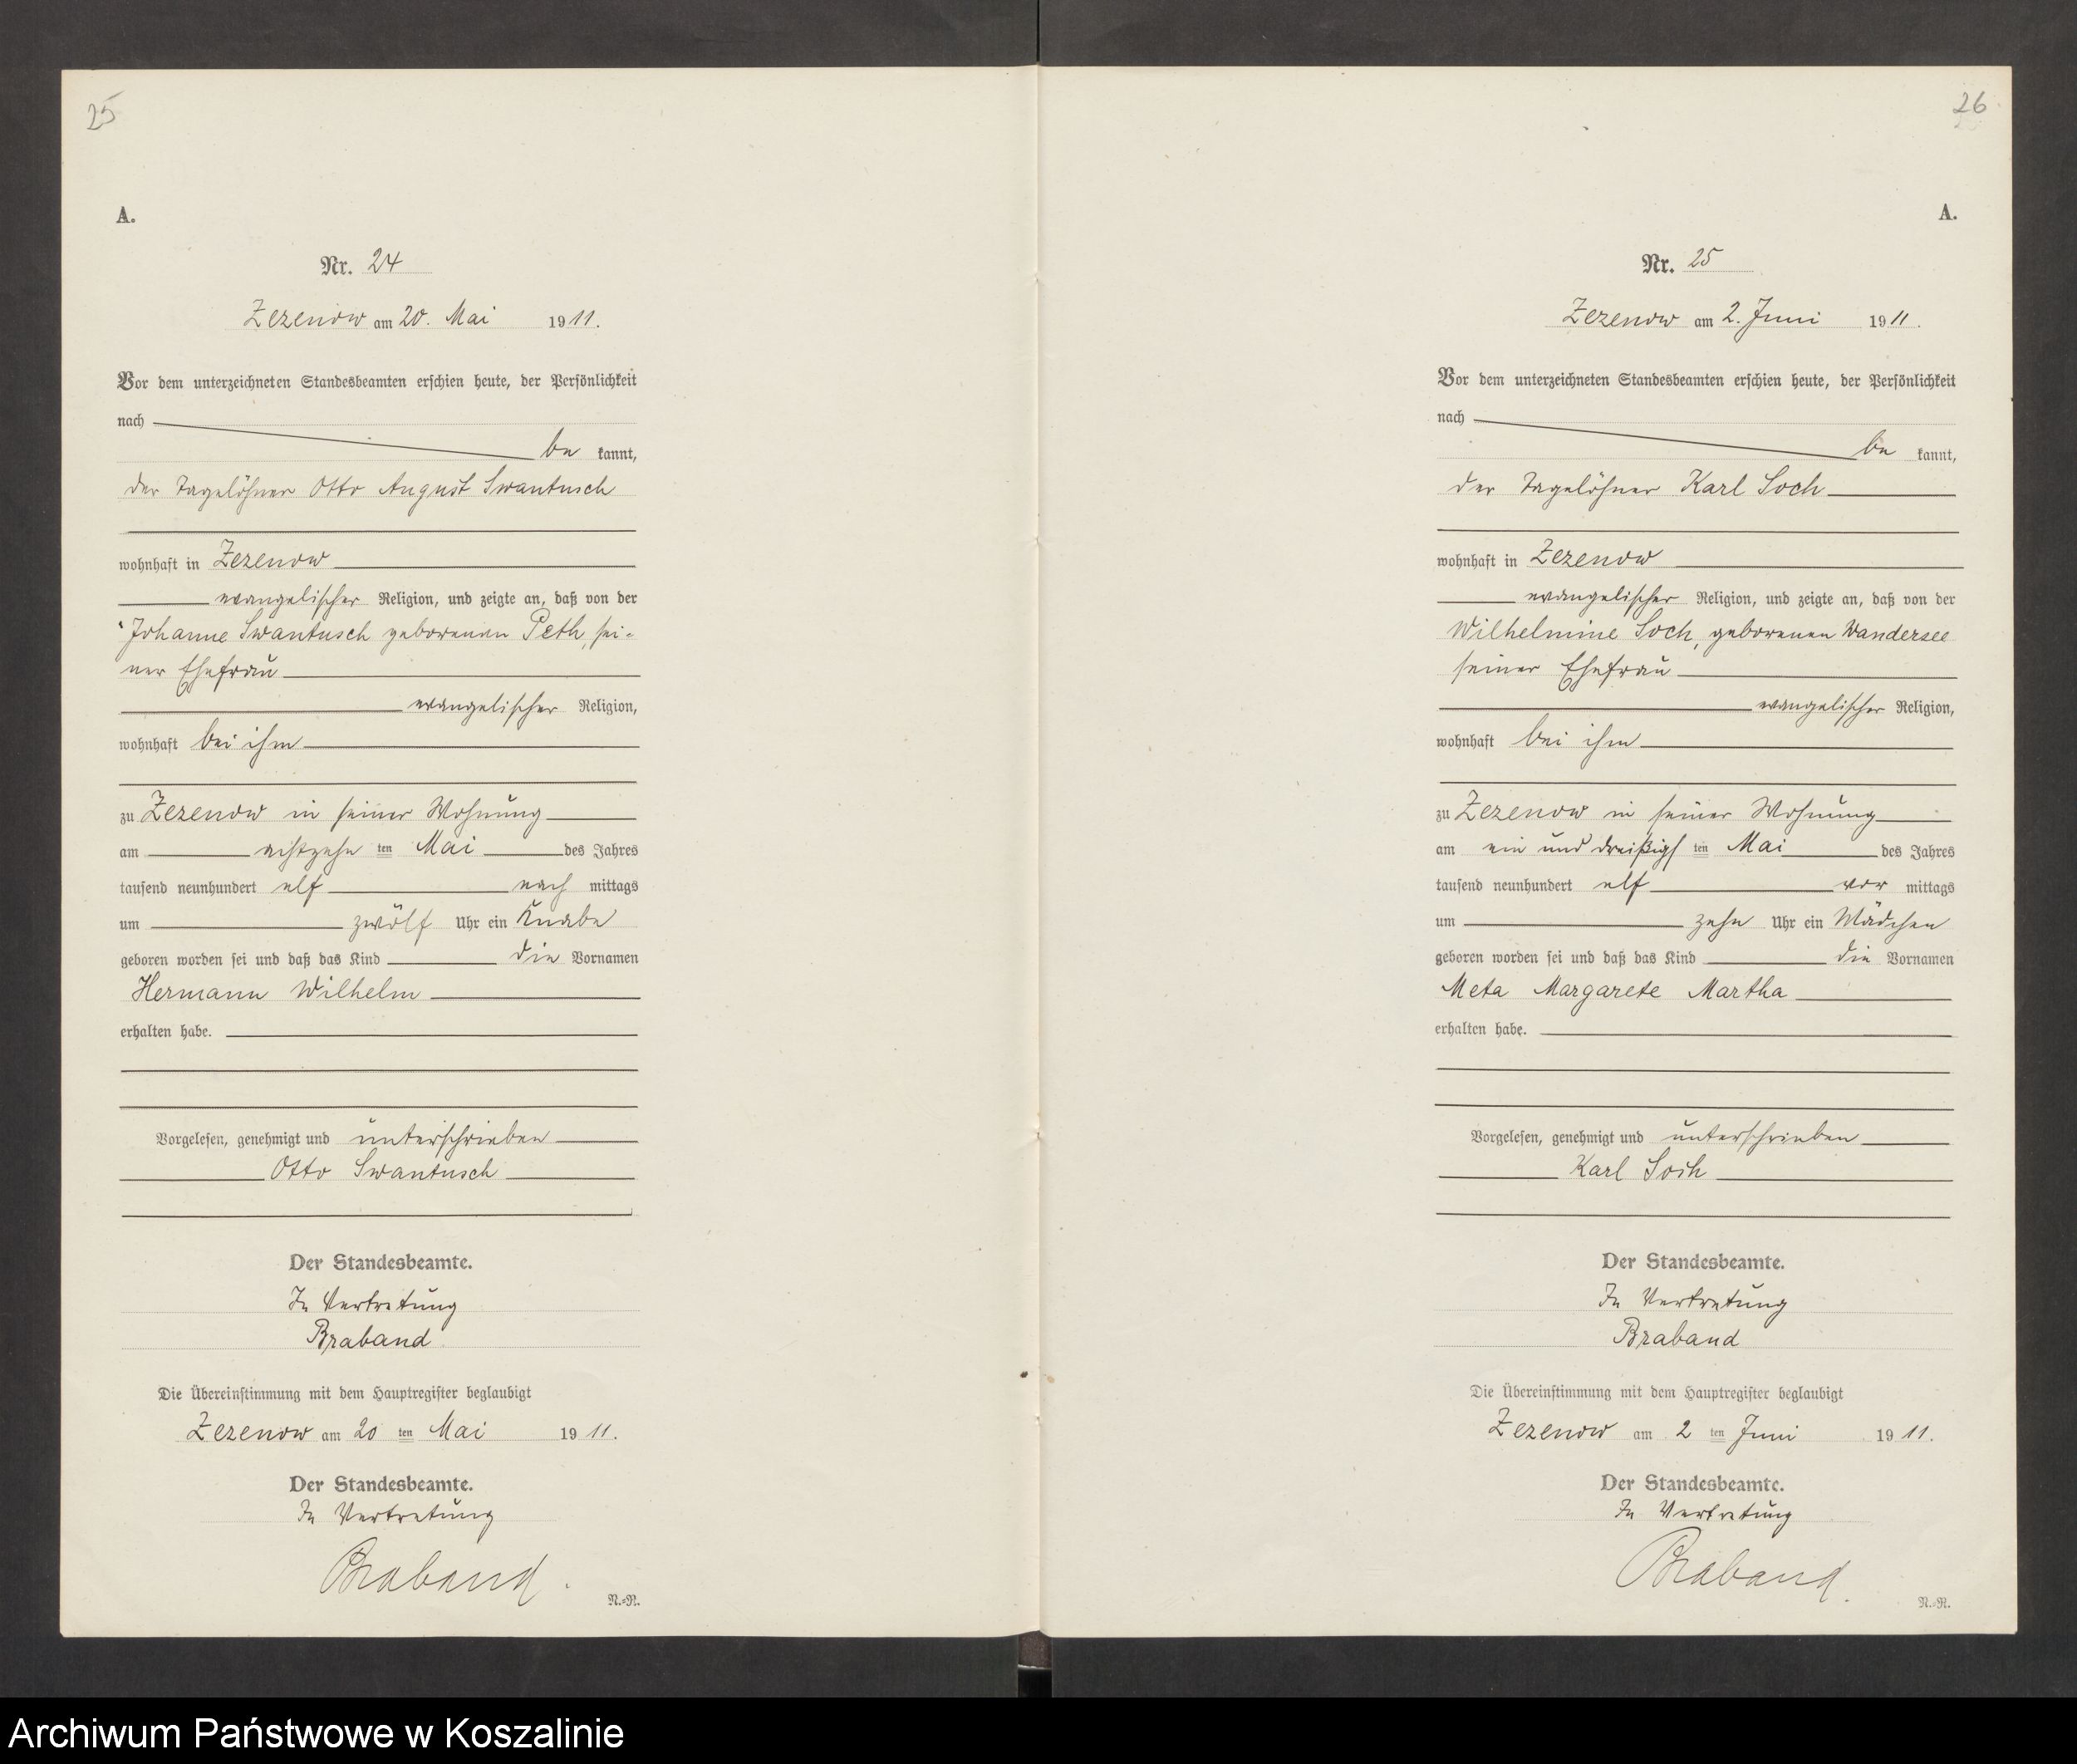 25
A.
Nr. 24
Zezenow am 20. Mai 1911.
Vor dem unterzeichneten Standesbeamten erschien heute, der Persönlichkeit
nach
be kannt,
der Tagelöhner Otto August Swantusch
wohnhaft in Zezenow
evangelischer Religion, und zeigte an, daß von der
Johanne Swantusch geborenen Peth, sei-
ner Ehefrau
evangelischer Religion,
wohnhaft bei ihm
zu Zezenow in seiner Wohnung
am achtzehn ten Mai des Jahres
tausend neunhundert elf nach mittags
um zwölf Uhr ein Knabe
geboren worden sei und daß das Kind die Vornamen
Hermann Wilhelm
erhalten habe.
Vorgelesen, genehmigt und unterschrieben
Otto Swantusch
Der Standesbeamte.
In Vertretung
Braband
Die Übereinstimmung mit dem Hauptregister beglaubigt
Zezenow am 20 ten Mai 1911.
Der Standesbeamte.
In Vertretung
Braband.
N.-R.
26
A.
Nr. 25
Zezenow am 2. Juni 1911.
Vor dem unterzeichneten Standesbeamten erschien heute, der Persönlichkeit
nach
be kannt,
der Tagelöhner Karl Soch
wohnhaft in Zezenow
evangelischer Religion, und zeigte an, daß von der
Wilhelmine Soch, geborenen Wandersee
seiner Ehefrau
evangelischer Religion,
wohnhaft bei ihm
zu Zezenow in seiner Wohnung
am ein und dreißigs ten Mai des Jahres
tausend neunhundert elf vor mittags
um zehn Uhr ein Mädchen
geboren worden sei und daß das Kind die Vornamen
Meta Margarete Martha
erhalten habe.
Vorgelesen, genehmigt und unterschrieben
Karl Soch
Der Standesbeamte.
In Vertretung
Braband
Die Übereinstimmung mit dem Hauptregister beglaubigt
Zezenow am 2 ten Juni 1911.
Der Standesbeamte.
In Vertretung
Braband.
N.-R.
Archiwum Państwowe w Koszalinie